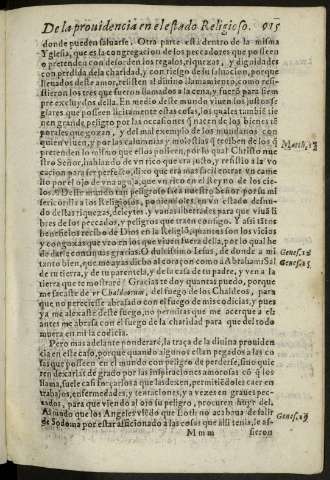 De la prouidencia en el estado Religioso. 615
donde pueden saluarse. Otra parte està dentro de la misma
Yglesia, que es la congregacion de los pecadores que posseen
o pretenden con desorden los regalos, riquezas, y dignidades
con perdida de la charidad, y con riesgo de su saluacion, porque
lleuados deste amor, resisten al diuino llamamiento, como resi-
stieron los tres que fueron llamados a la cena, y fuerō para siem
pre excluydos della. En medio deste mundo viuen los justos se
glares que posseen licitamente estas cosas, los quales tambiē tie
nen grande peligro por las ocasiones q̄ nacen de los bienes tē
porales que gozan, y del mal exemplo de los mundanos con
quien viuen, y por las calumnias y molestias q̄ reciben de los q̄
pretenden lo mismo que ellos posseen, por lo qual Christo nue
stro Señor, hablando de vn rico que era justo, y resistio a la vo
cacion para ser perfeto, dixo que era mas facil entrar vn came
llo por el ojo de vna aguja, que vn rico en el Reyno de los cie-
los. A Del mundo tan peligroso saca nuestro Señor por su mi
sericordia a los Religiosos, poniendolos en vn estado desnu-
do destas riquezas, deleytes, y vanas libertades para que viuā li
bres de los pecados, y peligros que traen consigo. Y assi tātos
beneficios recibo de Dios en la Religiō, quantos son los vicios
y congoxas que veo en los que viuen fuera della, por lo qual he
de darle continuas gracias. O dulcissimo Iesus, de donde a mi
tanto bien, que me ayas dicho al coraçon como a Abraham: Sal
de tu tierra, y de tu parentela, y de la casa de tu padre, y ven a la
tierra que te mostrarè? Gracias te doy quantas puedo, porque
me sacaste de vr Chaldæorum, del fuego de los Chaldeos, para
que no pereciesse abrasado con el fuego de mis codicias, y pues
ya me alexaste deste fuego, no permitas que me acerque a el:
antes me abrasa con el fuego de la charidad para que del todo
muera en mi la codicia.
Pero mas adelante ponderarè, la traça de la diuina prouiden
cia en este caso, porque quando algunos estan pegados a las co
sas que posseen en el mundo con peligro de perderse, sino quie
ren dexarlas de grado por las inspiraciones amorosas cō q̄ los
llama, suele casi forçarlos a que las dexen, permitiēdoles caer en
trabajos, enfermedades, y tentaciones, y a vezes en graues peca-
dos, para que viendo al ojo su peligro, procuren huyr del.
Al modo que los Angeles viēdo que Loth no acabaua de salir
de Sodoma por estar aficionado a las cosas que alli tenia, le as-
Mmm sieron
Matth. 19
Genes. 12
Genes. 15
Genes. 19